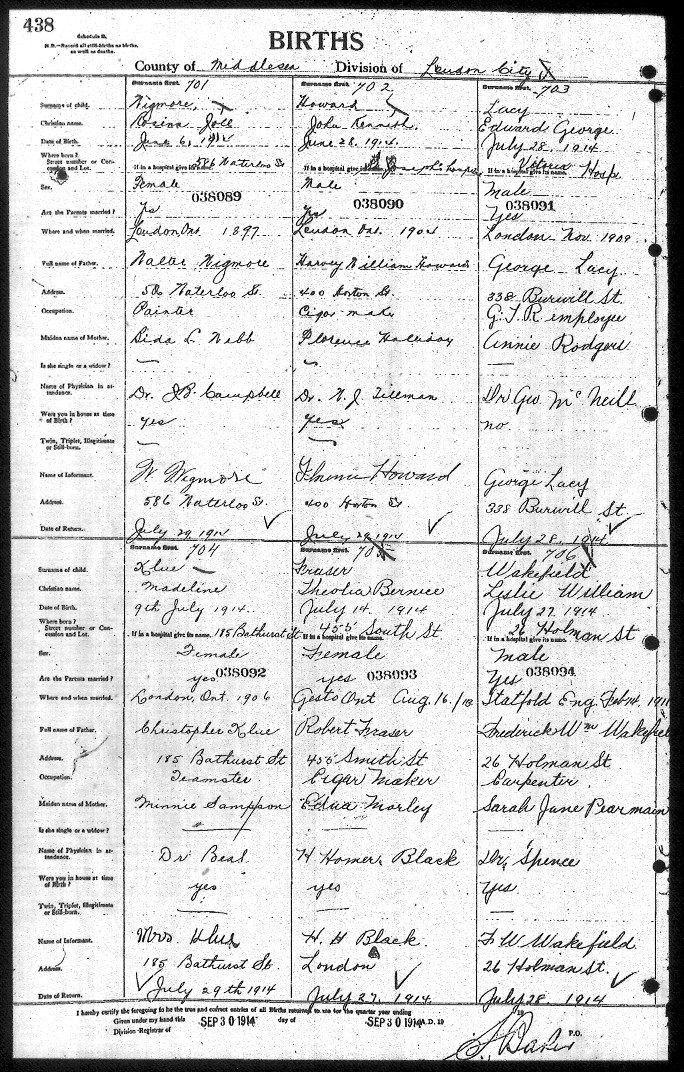 438
Schedule B.
N. B.—Record all still-births as births,
as well as deaths.
BIRTHS
County of Middlesex Division of London City
Surname first. 701 Surname first. 702 Surname first. 703
Surname of child. Wigmore, Howard Lacy
Christian name. John Kenneth Edward George
Date of Birth. June 6, 1914 June 28, 1914 July 28, 1914
Where born?
Street number or Con-
cession and Lot. If in a hospital give its name. 586 Waterloo St If in a hospital give its name. St Joseph's Hospital If in a hospital give its name. Victoria Hosp.
Sex. Female Male Male
038089 038090 038091
Are the Parents married? Yes Yes Yes
Where and when married. London Ont. 1897 London Ont. 1904 London Nov. 1909
Full name of Father. Walter Wigmore Harvey William Howard George Lacy
Address. 586 Waterloo St. 400 Horton St. 338 Burwill St.
Occupation. Painter Cigar maker G.T.R. employee
Maiden name of Mother. L. Webb Florence Halliday Annie Rodgers
Is she single or a widow? — — —
Name of Physician in at-
tendance. Dr. J.B. Campbell Dr. W. J. Tillman Dr Geo. McNeill
Were you in house at time
of Birth? yes yes no.
Twin, Triplet, Illegitimate
or Still-born. — —
Name of Informant. W. Wigmore Florence Howard George Lacy
Address. 586 Waterloo St. 400 Horton St 338 Burwill St.
Date of Return. July 29 1914 July 29 1914 July 28, 1914
Surname first. 704 Surname first. 705 Surname first. 706
Surname of child. Klue Fraser Wakefield
Christian name. Madeline Theolia Bernice Leslie William
Date of Birth. 9th July 1914. July 14, 1914 July 27, 1914
Where born?
Street number or Con-
cession and Lot. If in a hospital give its name. 185 Bathurst St If in a hospital give its name. 455 South St. If in a hospital give its name. 26 Holman St
Sex. Female Female Male
038092 038093 038094
Are the Parents married? yes yes Yes
Where and when married. London, Ont. 1906 Gesto Ont Aug. 16. Eng. Feb 14. 1911
Full name of Father. Christopher Klue Robert Fraser Frederick Wm Wakefield
Address. 185 Bathurst St 455 South St 26 Holman St.
Occupation. Teamster. Cigar Maker Carpenter
Maiden name of Mother. Minnie Sampson Edna Morley Sarah Jane Pearmain
Is she single or a widow? — — —
Name of Physician in at-
tendance. Dr Beal H Homer Black Dr. Spence
Were you in house at time
of Birth? yes yes Yes
Twin, Triplet, Illegitimate
or Still-born. — — —
Name of Informant. Mrs Klue H. H Black F W Wakefield
Address. 185 Bathurst St. London 26 Holman St.
Date of Return. July 29th 1914 July 27, 1914. July 28. 1914
I hereby certify the foregoing to be the true and correct entries of all Births returned to me for the quarter year ending
Given under my hand this SEP 30 1914 day of SEP 30 1914 A.D. 19
Division-Registrar of P.O.